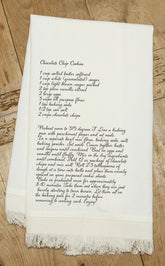 Chocolate Chip Cookies
1 cup salted butter softened
1 cup white (granulated) sugar
1 cup light brown sugar packed
2 tsp pure vanilla extract
2 large eggs
3 cups all-purpose flour
1 tsp baking soda
½ tsp baking powder
1 tsp sea salt
2 cups chocolate chips
Preheat oven to 375 degrees F. Line a baking
pan with parchment paper and set aside.
In a separate bowl mix flour, baking soda, salt,
baking powder. Set aside. Cream together butter
and sugars until combined. Beat in eggs and
vanilla until fluffy. Mix in the dry ingredients
until combined. Add 12 oz package of chocolate
chips and mix well. Roll 2-3 tablespoons
dough at a time into balls and place them evenly
spaced on your prepared cookie sheets.
Bake in preheated oven for approximately
8-10 minutes. Take them out when they are just
barely starting to turn brown. Let them sit on
the baking pan for 2 minutes before
removing to cooling rack. Enjoy!